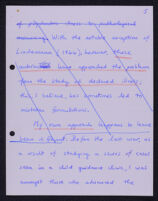 5
of psychiatric stress by pathological
mourning. With the notable exception of
Lindemann (1944), however, these
authors have approached the problem
from the study of declared illness;
this, I believe, has sometimes led to
mistaken formulations.
My own approach happens to have
been different. Before the last war, as
a result of studying a series of cases
seen in a child guidance clinic, I was
amongst those who advanced the